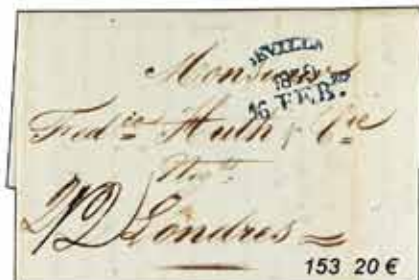 SEVILLA
1839
16 FEB.
Monsieur
Fred.co Huth y Cie
2/2 Londres
153 20 €